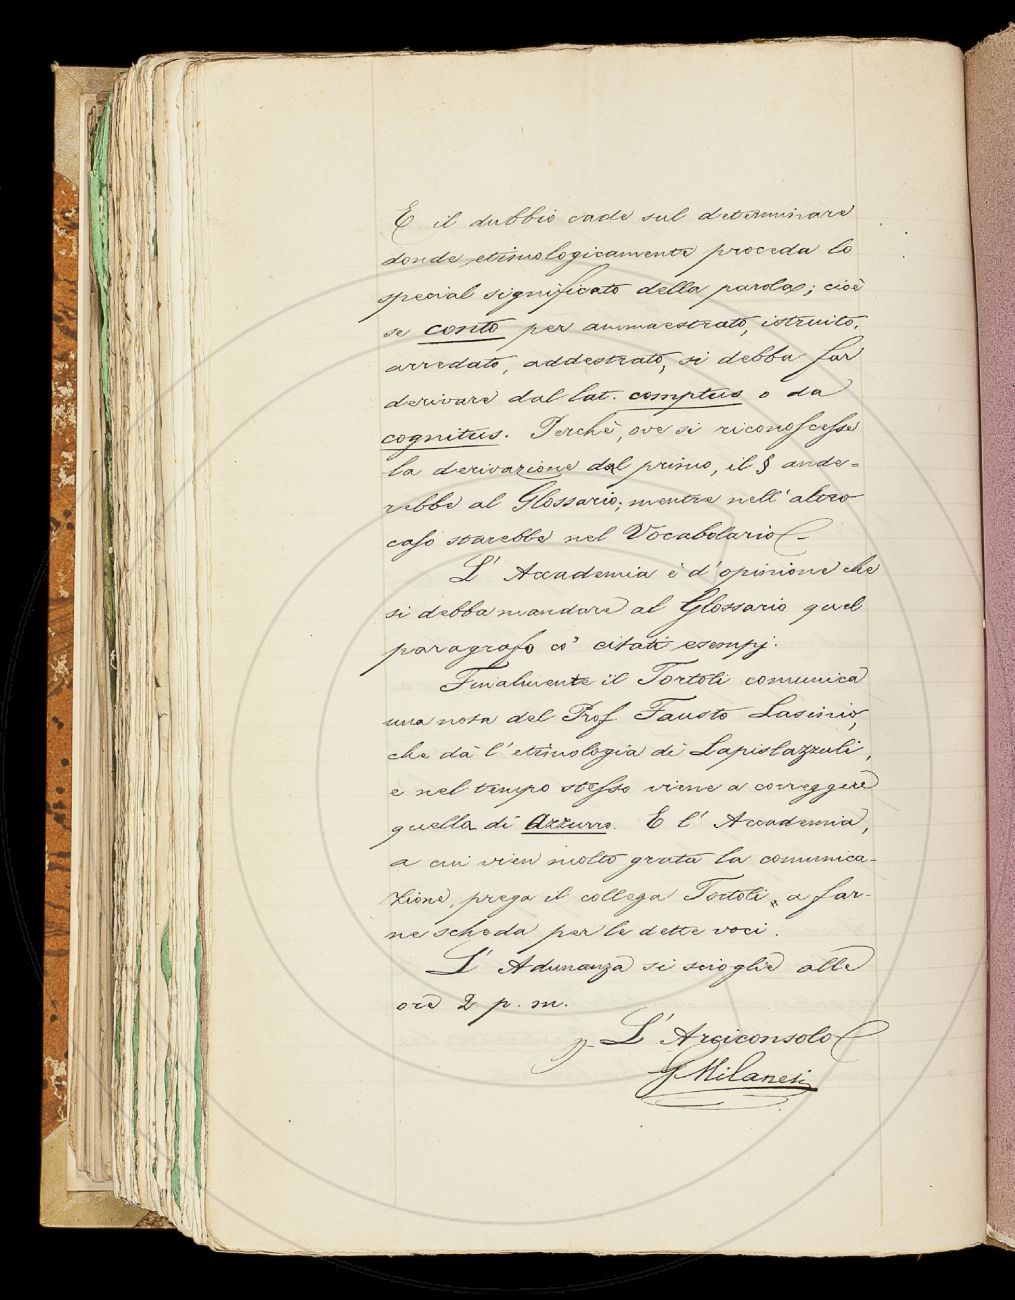 E il dubbio cade sul determinare
donde etimologicamente proceda lo
special significato della parola; cioè
se conto per ammaestrato, istruito,
arredato, addestrato, si debba far
derivare dal lat. comptus o da
cognitus. Perchè, ove si riconoscesse
la derivazione dal primo, il § ande-
rebbe al Glossario; mentre nell'altro
caso starebbe nel Vocabolario.
L'Accademia è d'opinione che
si debba mandare al Glossario quel
paragrafo co' citati esempj.
Finalmente il Tortoli comunica
una nota del Prof. Fausto Lasinio,
che dà l'etimologia di Lapislazzuli,
e nel tempo stesso viene a correggere
quella di Azzurro. E l'Accademia,
a cui vien molto grata la comunica-
zione, prega il collega Tortoli a far-
ne scheda per le dette voci.
L'Adunanza si scioglie alle
ore 2 p. m.
L'Arciconsolo
G Milanesi